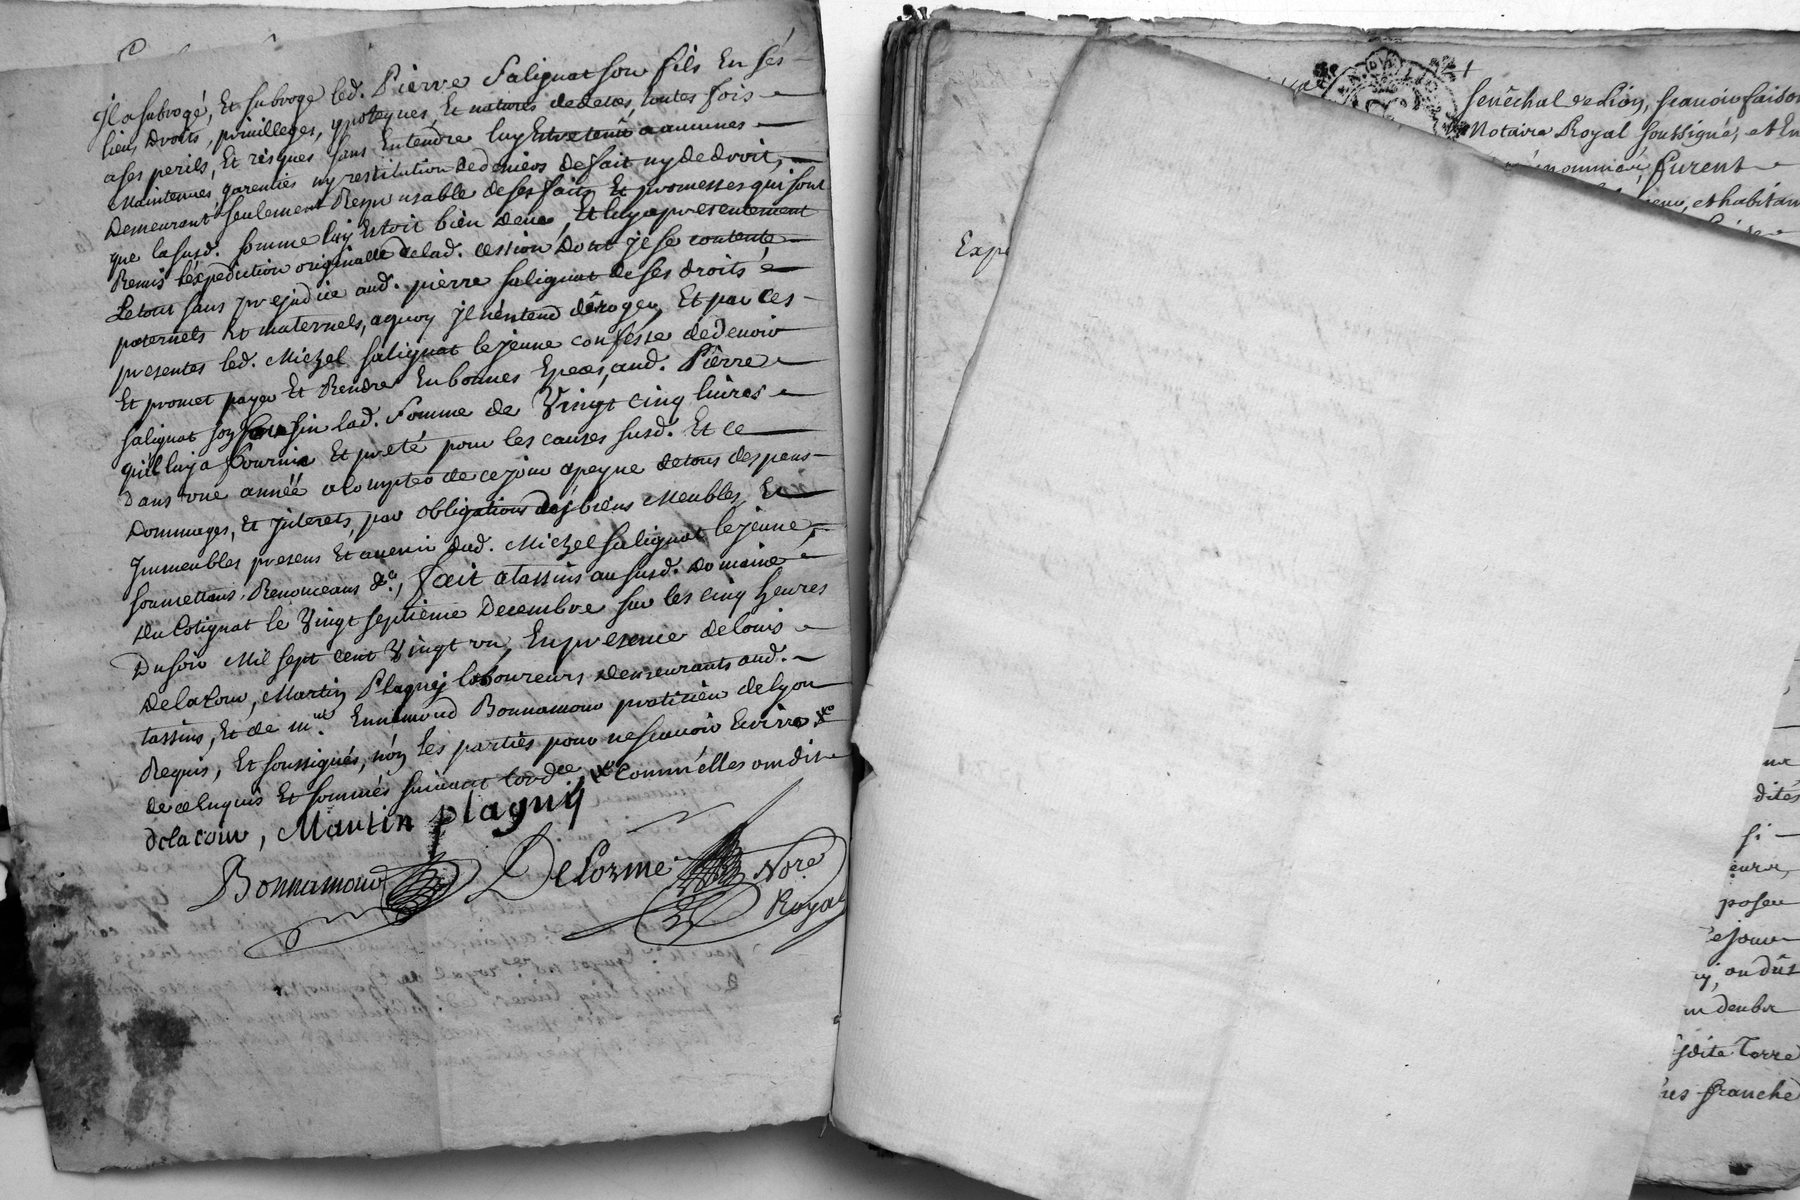 Jl a subrogé, Et subroge led. Pierre Salignat son fils En ses
lieu Droits, privilleges, ypoteques, Et natures dedetes, toutes fois
a ses perils, Et risques sans Entendre luy Estre tenu a aucunes
Maintenues, garenties ny restitution dedeniers de fait ny de droit,
Demeurant seulement Responsable de ses faits Et promesses qui sont
que lasusd. somme luy Estoit bien deue, Et luy a presentement
Remis l'expedition originalle delad. cession Dont jl se contente
Le tout sans prejudice aud. pierre salignat de ses droits
paternels Et maternels, aquoy jl n'entend déroger, Et par Ces
presentes led. Michel salignat lejeune confesse dedevoir
Et promet payer Et Rendre En bonnes Epeces, aud. Pierre
salignat son Cousin lad. somme de Vingt cinq livres
qu'il luy a fournie Et preté pour les causes susd. Et ce
Dans une année a Compter de ce jour a peyne detous despens
Dommages, Et jnterets, par obligations des biens Meubles, Et
jmmeubles presens Et avenir dud. Michel salignat lejeune,
soumettans, Renonceans &a, fait a tassins au susd. Domaine
du Cotignat le Vingt septieme Decembre sur les cinq heures
Du soir Mil sept cent Vingt un, En presence de louis
Delacour, Martin Plagniy laboureurs demeurants aud.
tassins, Et de mre. Ennemond Bonnamour praticien de lyon
Requis, Et soussignés, nón les parties pour ne scavoir Ecrire
de ce Enquis Et sommés suivant lordce Comm'elles ont dit
Delacour, Martin plagniy
Bonnamour DeLorme Nore
Royal
Exp
senéchal de Lion, scavoir faison
Notaire Royal soussigné, et En
nommée, furent
et habitan
dités
si
poseu
ou dût
sdite Terre
franche